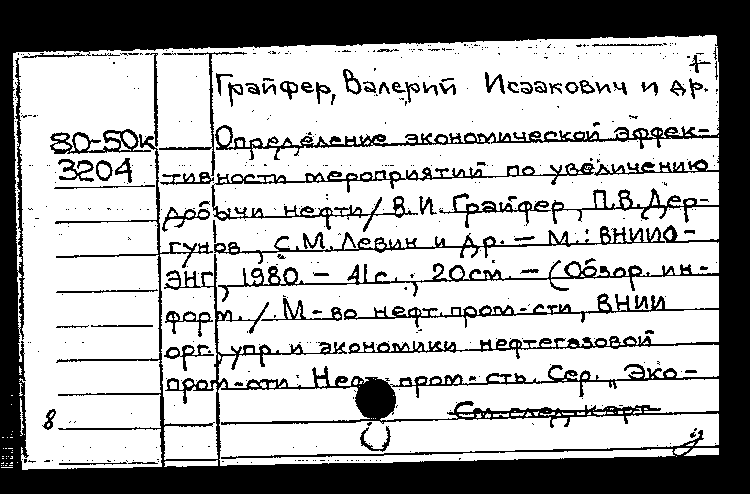 +
Грайфер, Валерий Исаакович и др.
80-50к
3204
Определение экономической эффек-
тивности мероприятий по увеличению
добычи нефти / В.И. Грайфер, П.В. Дер-
гунов, С.М. Левин и др. — М.: ВНИИО-
ЭНГ, 1980. — 41 с.; 20 см. — (Обзор. ин-
форм. / М-во нефт. пром-сти, ВНИИ
орг., упр. и экономики нефтегазовой
пром-сти: Нефт. пром-сть. Сер. „Эко-
См. след. карт
8